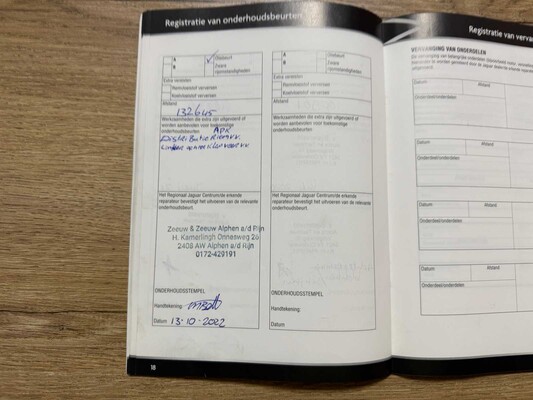 Registratie van onderhoudsbeurten
A
B
Oliebeurt
Zware
rijomstandigheden
Extra vereisten
Remvloeistof verversen
Koelvloeistof verversen
Afstand
132645
Werkzaamheden die extra zijn uitgevoerd of
worden aanbevolen voor toekomstige
onderhoudsbeurten
APK
Distributie Riem v.v.
Het Regionaal Jaguar Centrum/de erkende
reparateur bevestigt het uitvoeren van de relevante
onderhoudsbeurt.
Zeeuw & Zeeuw Alphen a/d Rijn
H. Kamerlingh Onnesweg 26
2408 AW Alphen a/d Rijn
0172-429191
ONDERHOUDSSTEMPEL
Handtekening:
Datum 13-10-2022
18
A
B
Oliebeurt
Zware
rijomstandigheden
Extra vereisten
Remvloeistof verversen
Koelvloeistof verversen
Afstand
Werkzaamheden die extra zijn uitgevoerd of
worden aanbevolen voor toekomstige
onderhoudsbeurten
Het Regionaal Jaguar Centrum/de erkende
reparateur bevestigt het uitvoeren van de relevante
onderhoudsbeurt.
ONDERHOUDSSTEMPEL
Handtekening:
Datum
Registratie van
VERVANGING VAN ONDERDELEN
Datum
Afstand
Onderdeel/onderdelen
Datum
Afstand
Onderdeel/onderdelen
Datum
Afstand
Onderdeel/onderdelen
Datum
Afstand
Onderdeel/onderdelen